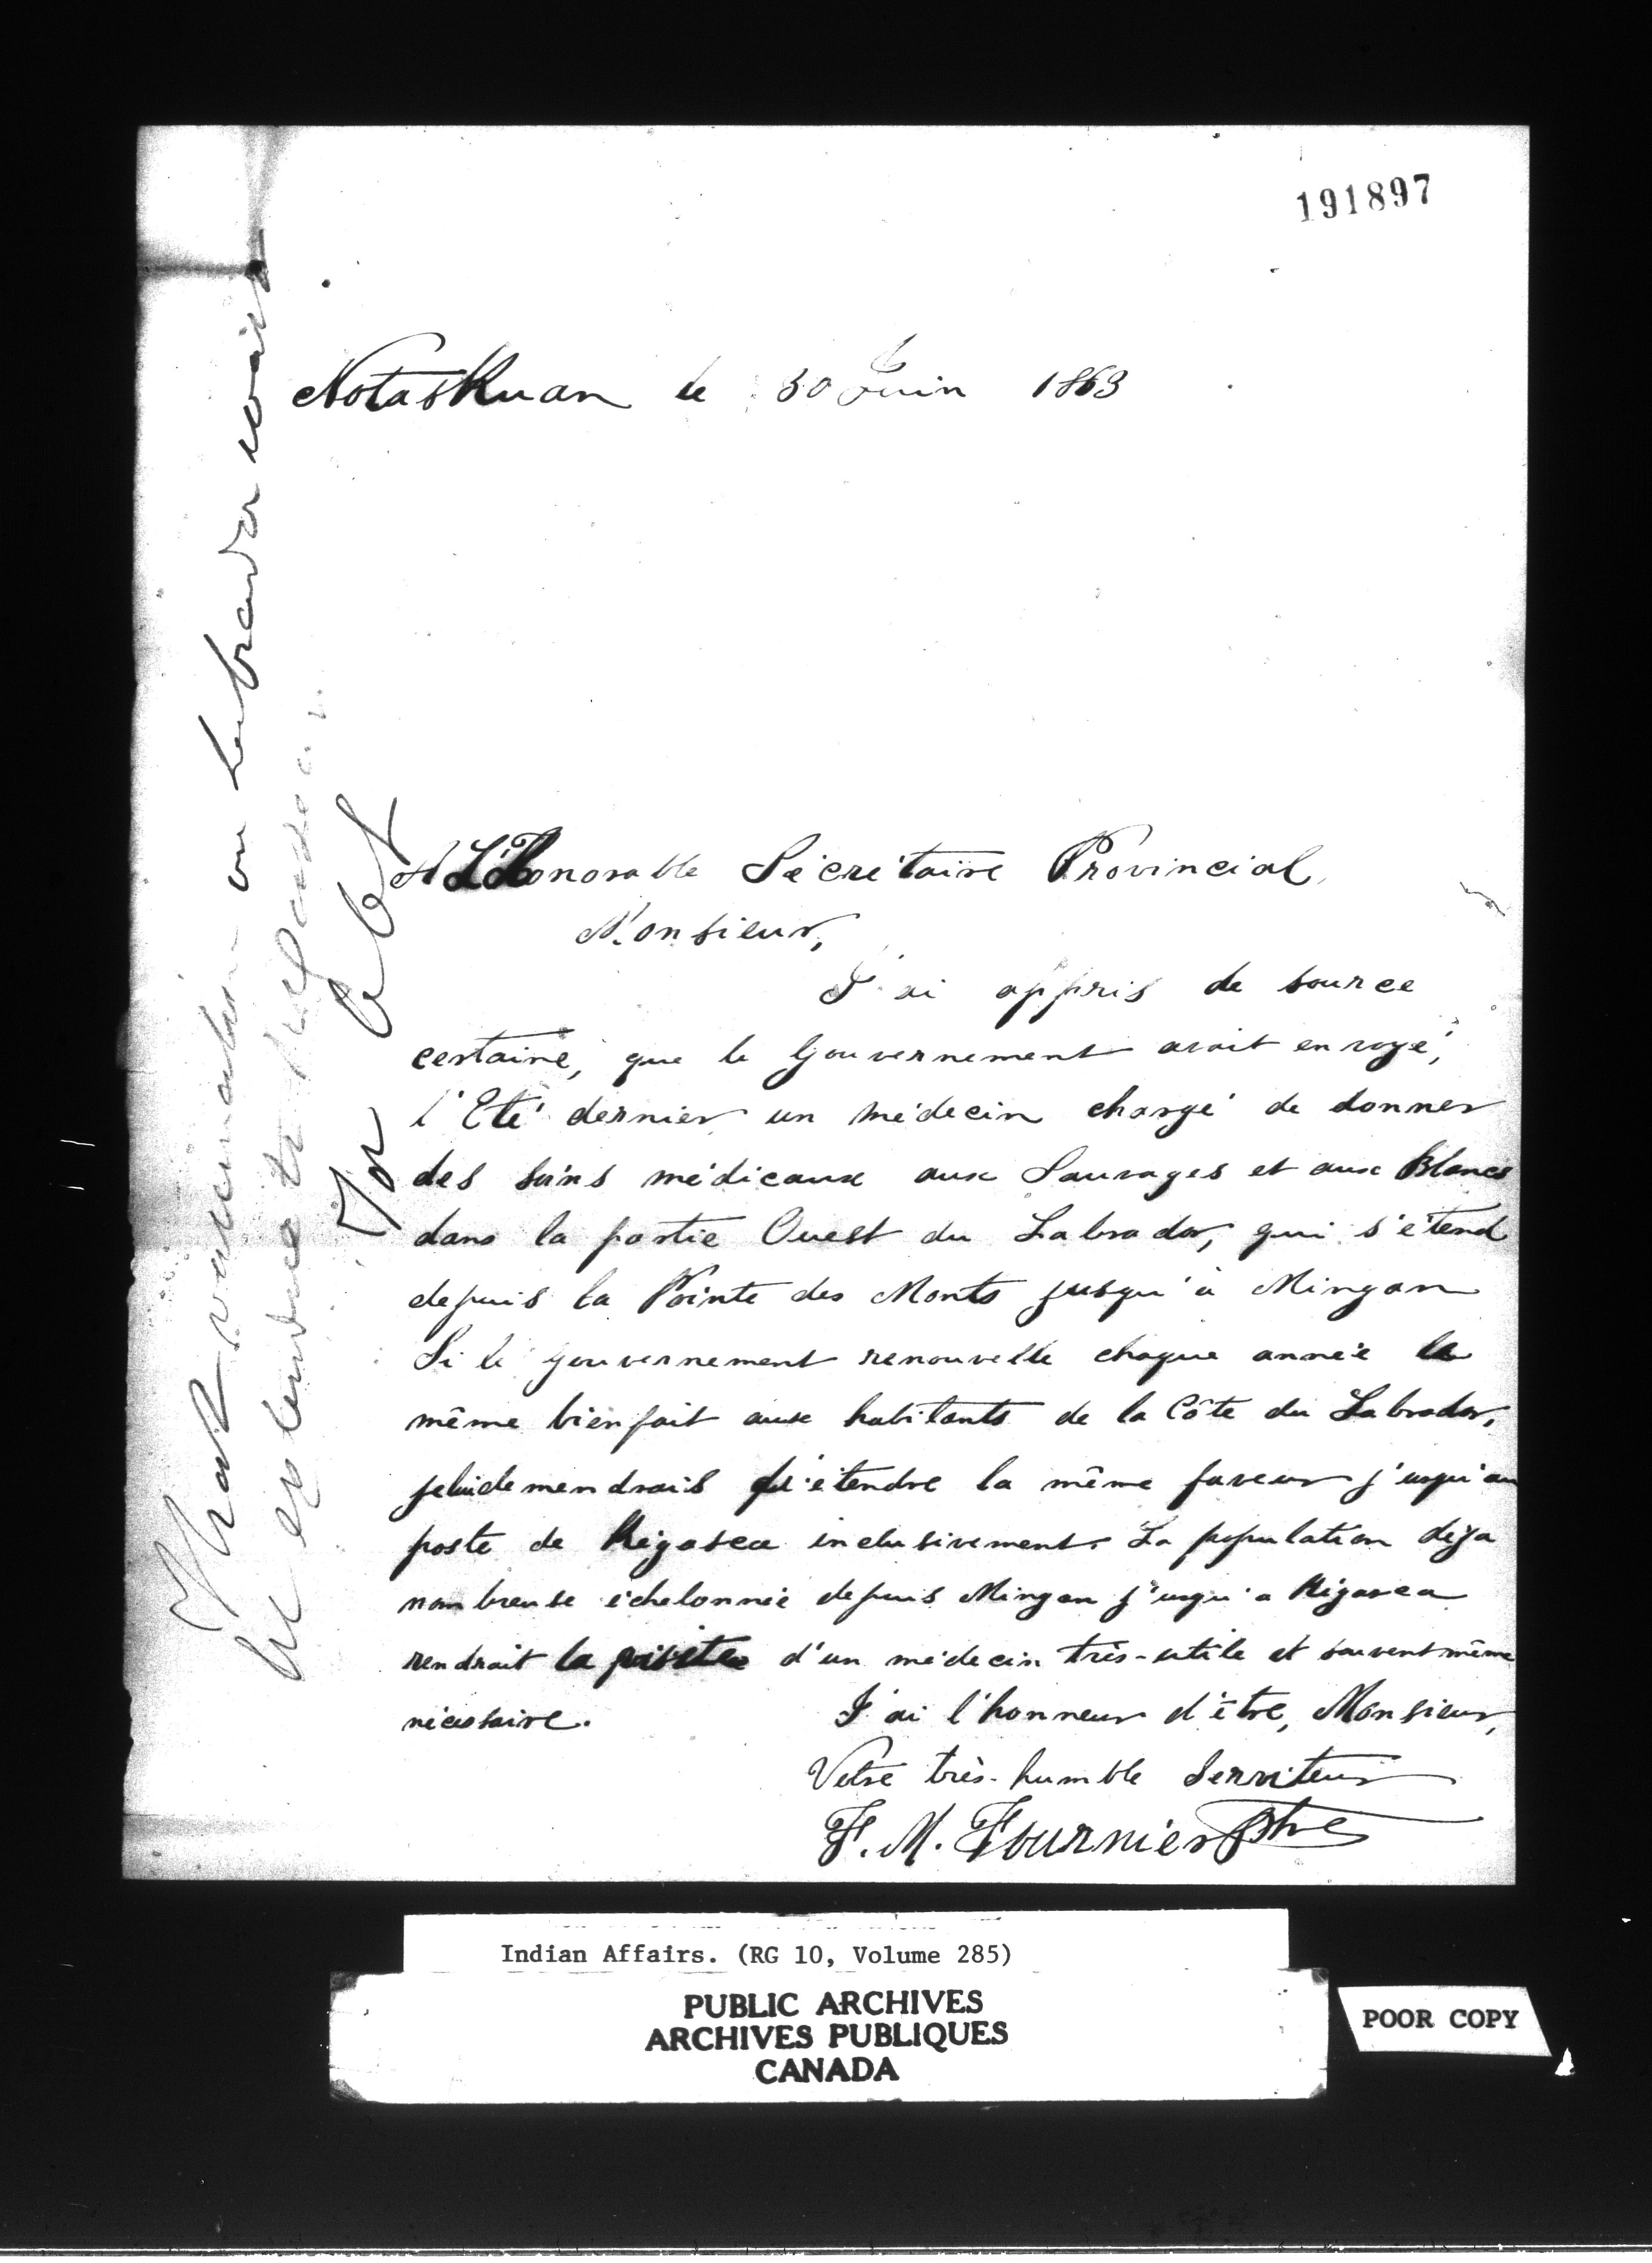 191897
Notaskuan le 30 Juin 1863
A L'Honorable Sécrétaire Provincial,
Monsieur,
J'ai appris de source
certaine, que le Gouvernement avait envoyé,
l'Eté dernier un médecin chargé de donner
des soins médicaux aux Sauvages et aux Blancs
dans la partie Ouest du Labrador, qui s'étend
depuis la Pointe des Monts jusqu'à Mingan
Si le gouvernement renouvelle chaque année le
même bienfait aux habitants de la Côte du Labrador,
je lui demendrais d'étendre la même faveur j'usqu'au
poste de Kégasca inclusivement. La population déja
nombreuse échelonnée depuis Mingan j'usqu'a Kégasca
rendrait la visite d'un médecin très-utile et souvent même
nécessaire.
J'ai l'honneur d'être, Monsieur,
Votre très-humble Serviteur
F. M. Fournier Ptre
That vaccination on Labrador coast
be extended to
For
Indian Affairs. (RG 10, Volume 285)
PUBLIC ARCHIVES
ARCHIVES PUBLIQUES
CANADA
POOR COPY